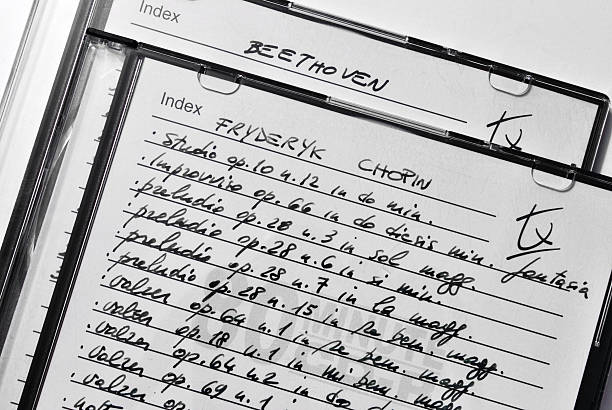 Index
BEETHOVEN
tx
Index
FRYDERYK CHOPIN
tx
· studio op.10 n.12 in do min.
· improvviso op.66 in do diesis min. fantasia
· preludio op.28 n.3 in sol magg.
· preludio op.28 n.6 in si min.
· preludio op.28 n.7 in la magg.
· preludio op.28 n.15 in re bem. magg.
· valzer op.64 n.1 in re bem. magg.
· valzer op.18 n.1 in mi bem. magg.
· valzer op.64 n.2 in do
· valzer op.69 n.1
· nott